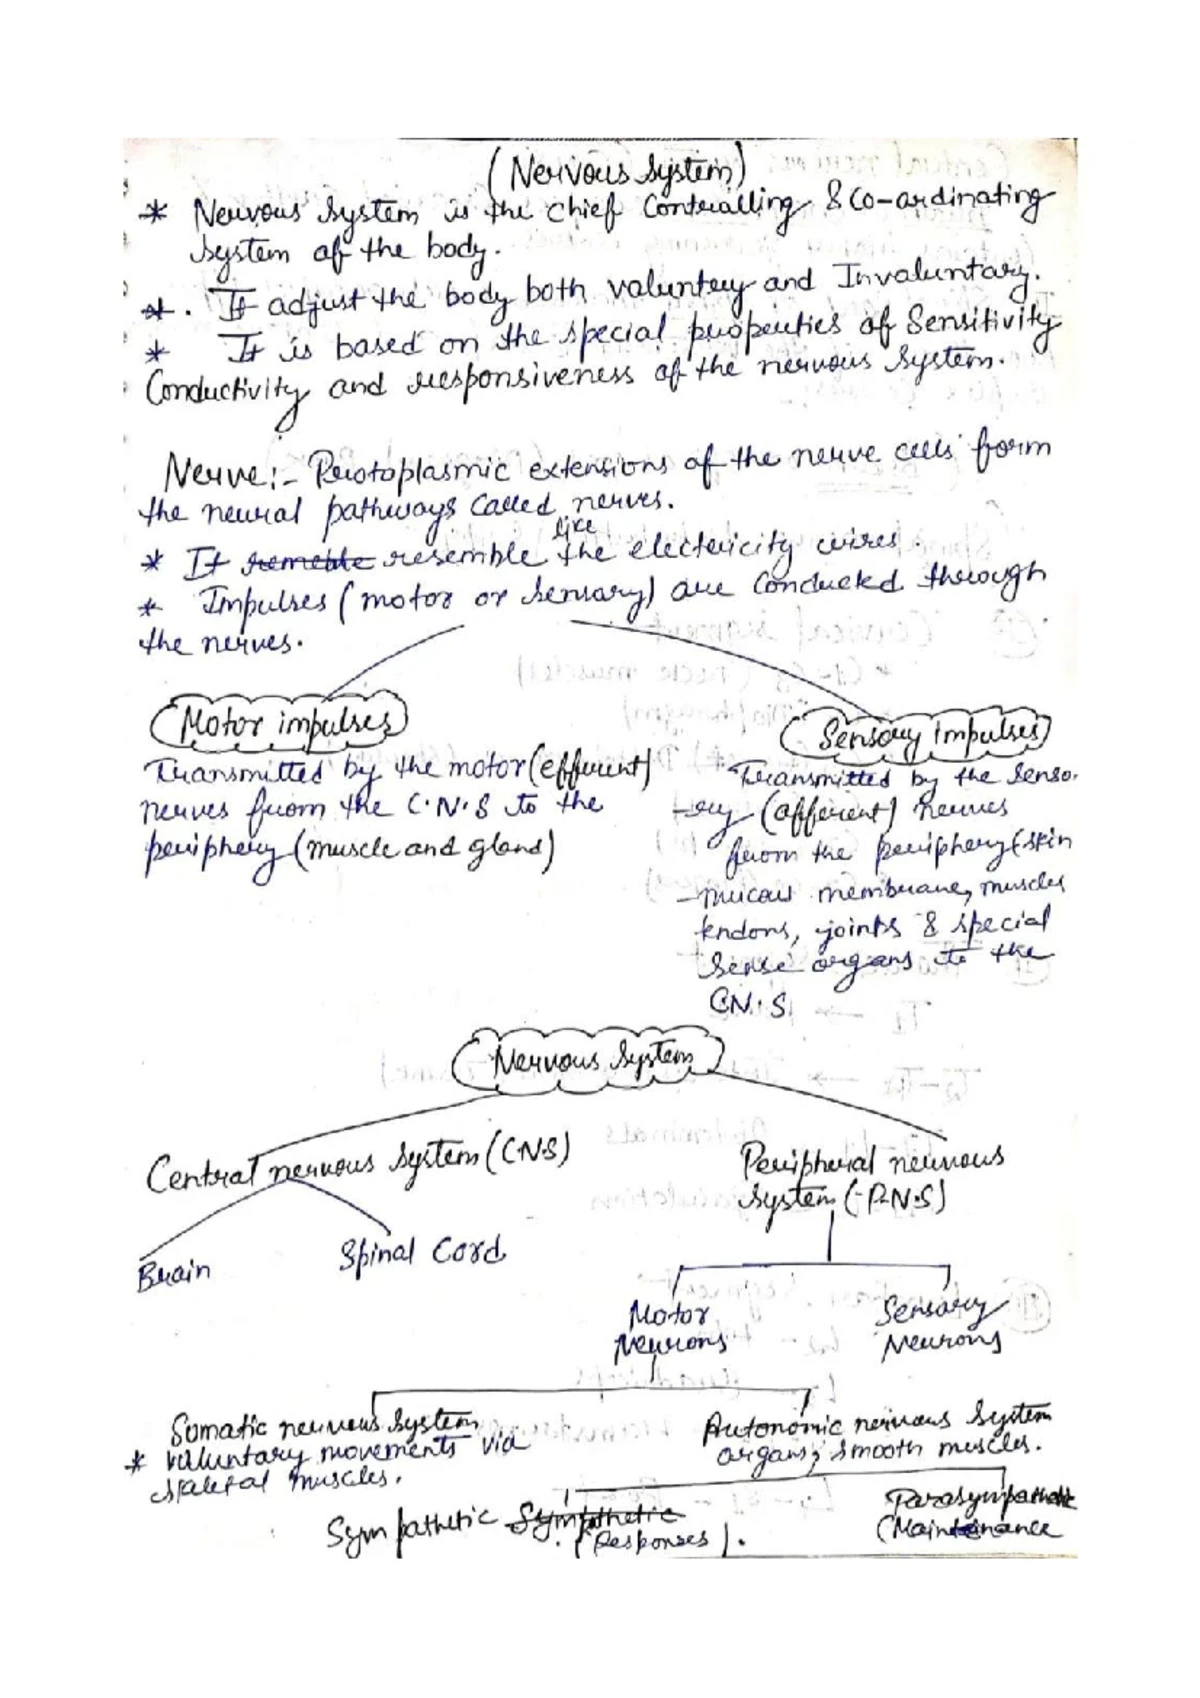 (Nervous System)
* Nervous System is the chief Controlling & Co-ordinating
System of the body.
* . It adjust the body both voluntary and Involuntary.
* It is based on the special properties of Sensitivity
Conductivity and responsiveness of the nervous System.
Nerve:- Protoplasmic extensions of the nerve cells form
the neural pathways Called nerves.
like
* It resemble the electricity wires.
* Impulses (motor or Sensory) are Conducted through
the nerves.
Motor impulses
Transmitted by the motor (efferent)
nerves from the C.N.S to the
periphery (muscle and gland)
Sensory impulses
Transmitted by the Senso-
-ry (afferent) nerves
from the periphery (skin
-mucous membrane, muscles
tendons, joints & special
Sense organs to the
C.N.S
Nervous System
Central nervous System (C.N.S)
Brain
Spinal Cord
Peripheral nervous
System (P.N.S)
Motor
Neurons
Sensory
Neurons
Somatic nervous System
* voluntary movements via
skeletal muscles.
Autonomic nervous System
organs, smooth muscles.
Sympathetic Sympathetic
(Responses).
Parasympathetic
(Maintenance